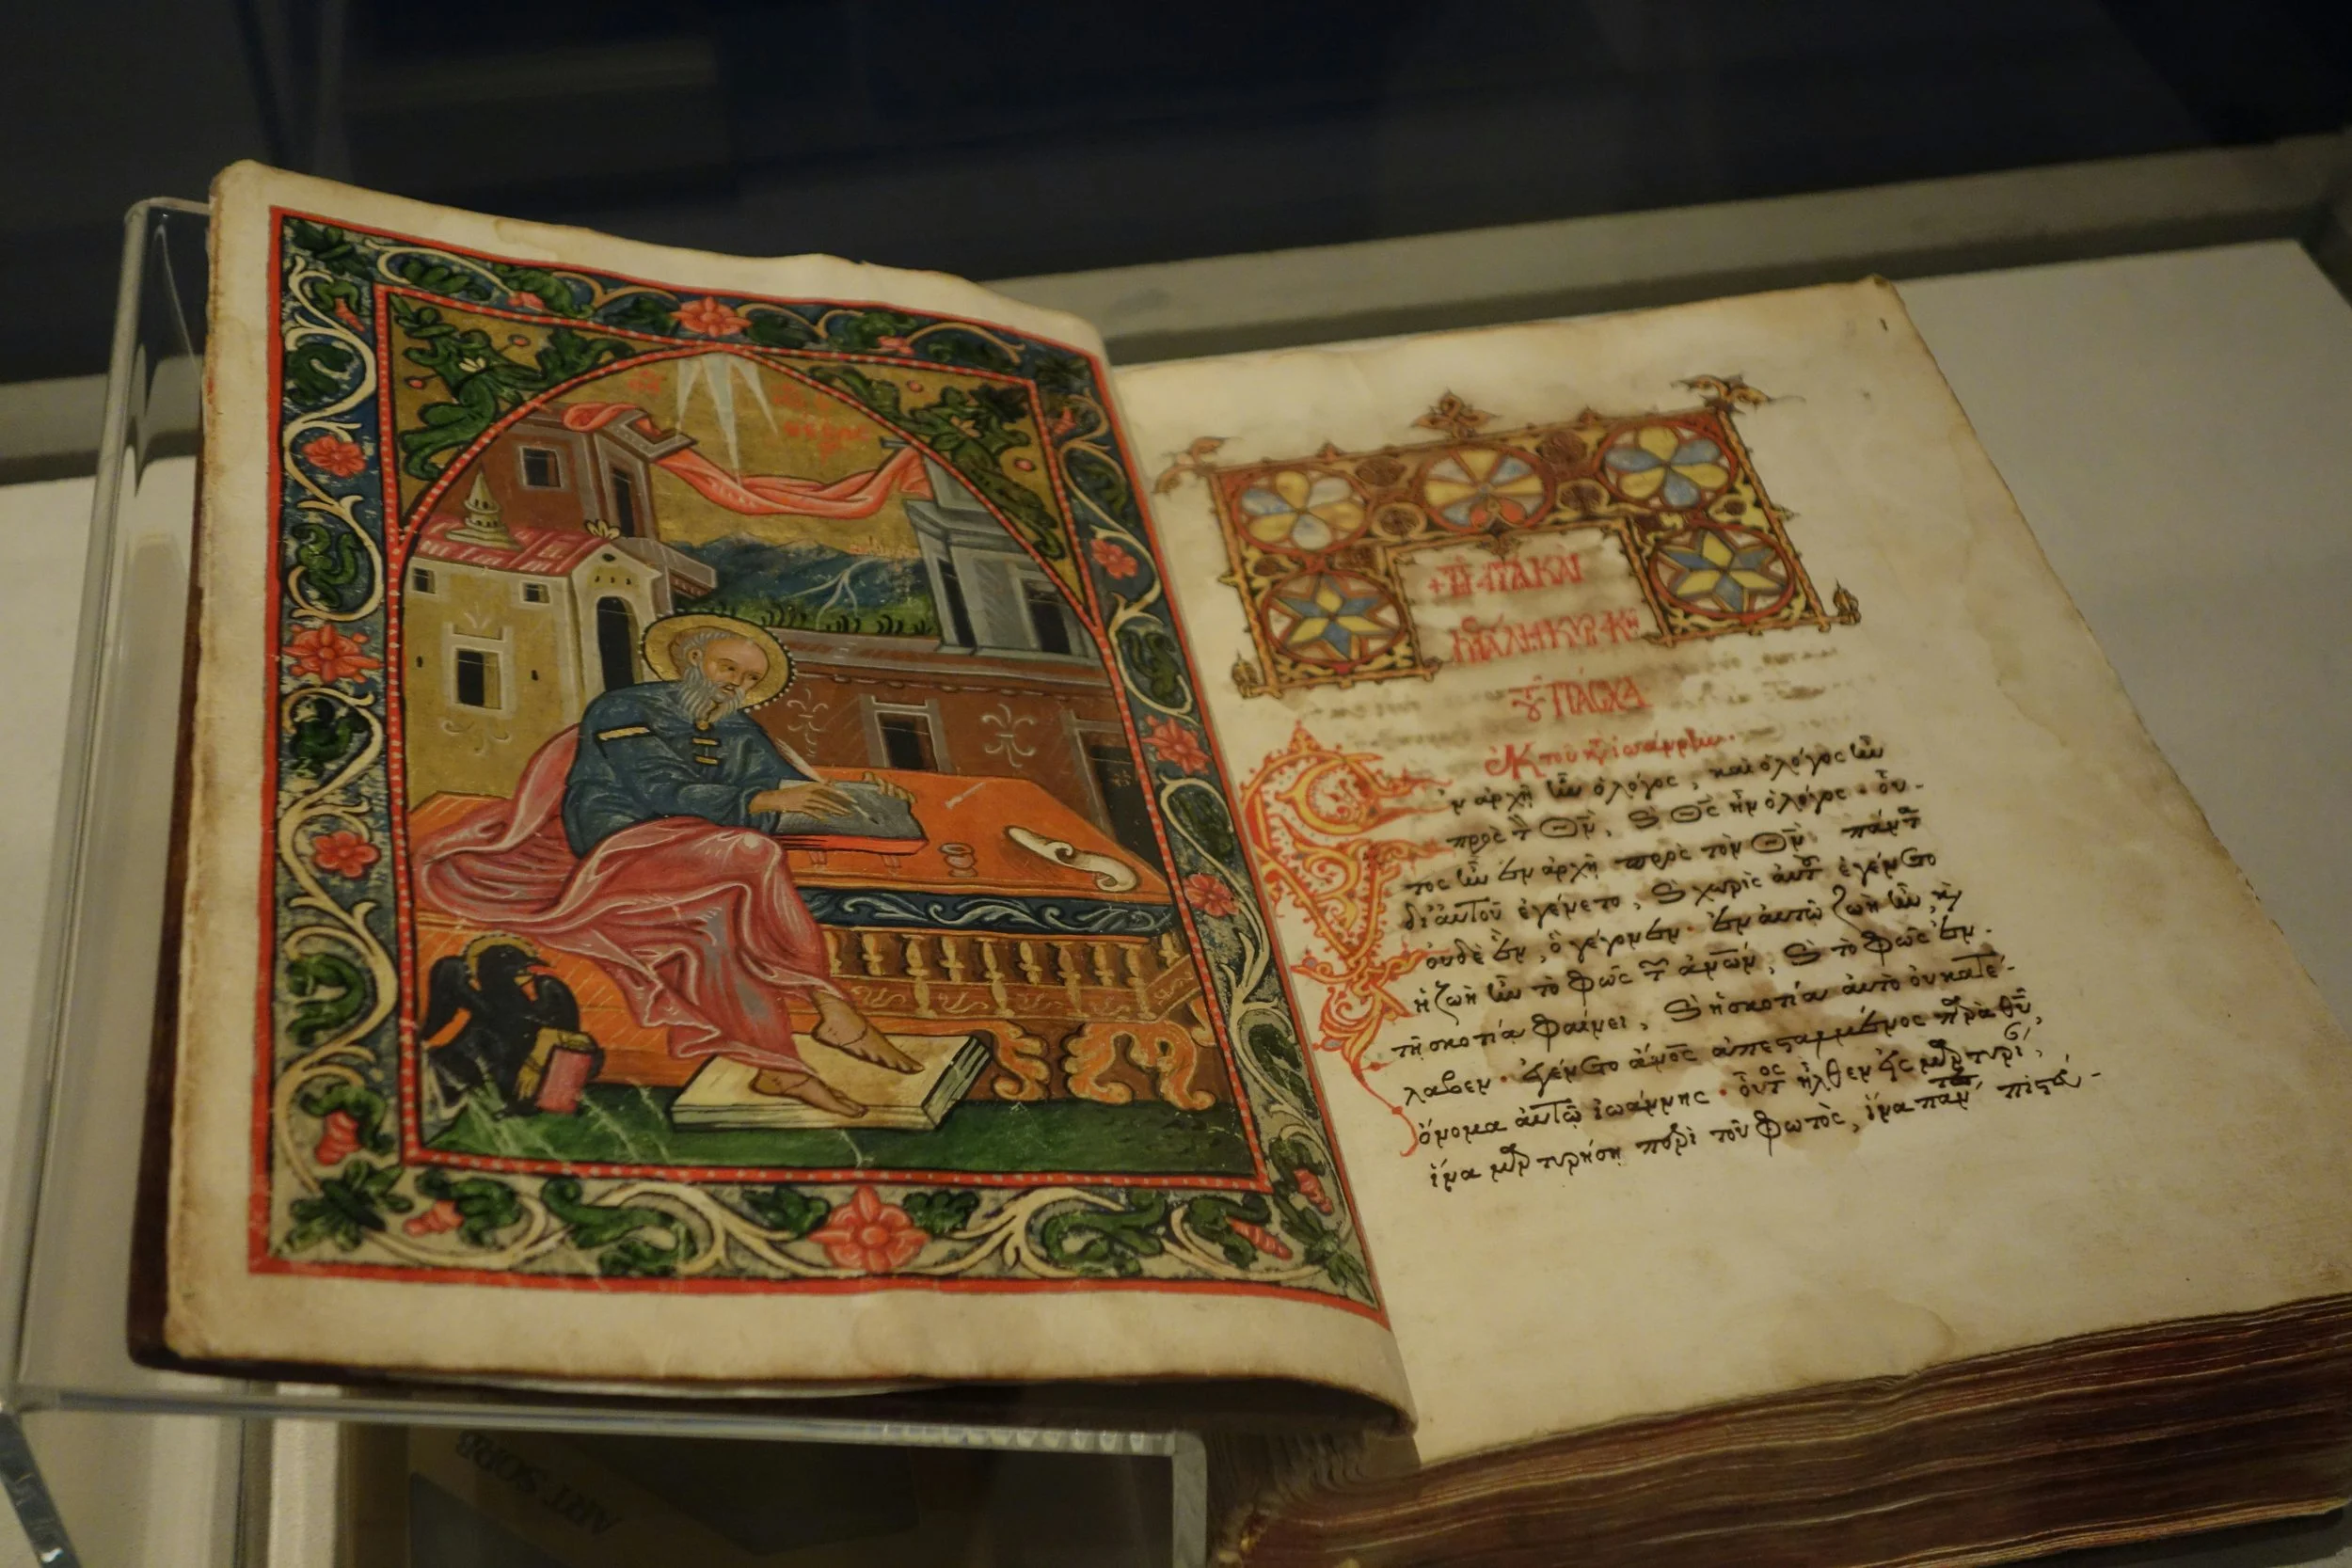 + Τῇ ἁγίᾳ καὶ
μεγάλῃ κυριακῇ
τοῦ Πάσχα
ἐκ τοῦ κ(ατὰ) ἰωάννην.
Ἐν ἀρχῇ ἦν ὁ λόγος, καὶ ὁ λόγος ἦν
πρὸς τὸν Θν̅, ϗ Θς̅ ἦν ὁ λόγος · οὗ-
τος ἦν ἐν ἀρχῇ πρὸς τὸν Θν̅· πάντα
δι' αὐτοῦ ἐγένετο, ϗ χωρὶς αὐτοῦ ἐγένετο
οὐδὲ ἕν, ὃ γέγονεν· ἐν αὐτῷ ζωὴ ἦν, ϗ
ἡ ζωὴ ἦν τὸ φῶς τῶν ἀν̅ων, ϗ τὸ φῶς ἐν
τῇ σκοτίᾳ φαίνει, ϗ ἡ σκοτία αὐτὸ οὐ κατέ-
λαβεν· ἐγένετο ἄν̅ος ἀπεσταλμένος παρὰ θυ̅,
ὄνομα αὐτῷ ἰωάννης · οὗτος ἦλθεν εἰς μαρτυρί,
ἵνα μαρτυρήσῃ περὶ τοῦ φωτὸς, ἵνα πάντ πιστεύ-